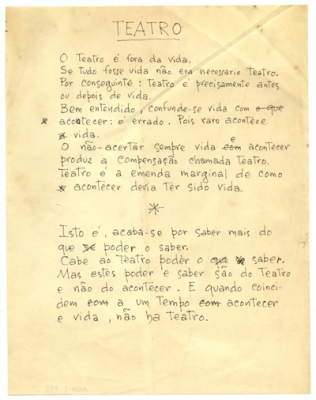 TEATRO
O Teatro é fora da vida.
Se tudo fosse vida não era necessario Teatro.
Por conseguinte: Teatro é precisamente antes
ou depois de vida.
Bem entendido, confunde-se vida com o que
acontecer: é errado. Pois raro acontece
vida.
O não-acertar sempre vida com e acontecer
produz a compensação chamada Teatro.
Teatro é a emenda marginal de como
acontecer devia Ter sido vida.
*
Isto é, acaba-se por saber mais do
que poder o saber.
Cabe ao Teatro poder o que saber.
Mas estes poder e saber são do Teatro
e não do acontecer. E quando coinci-
dem com a um Tempo com acontecer
e vida, não ha Teatro.